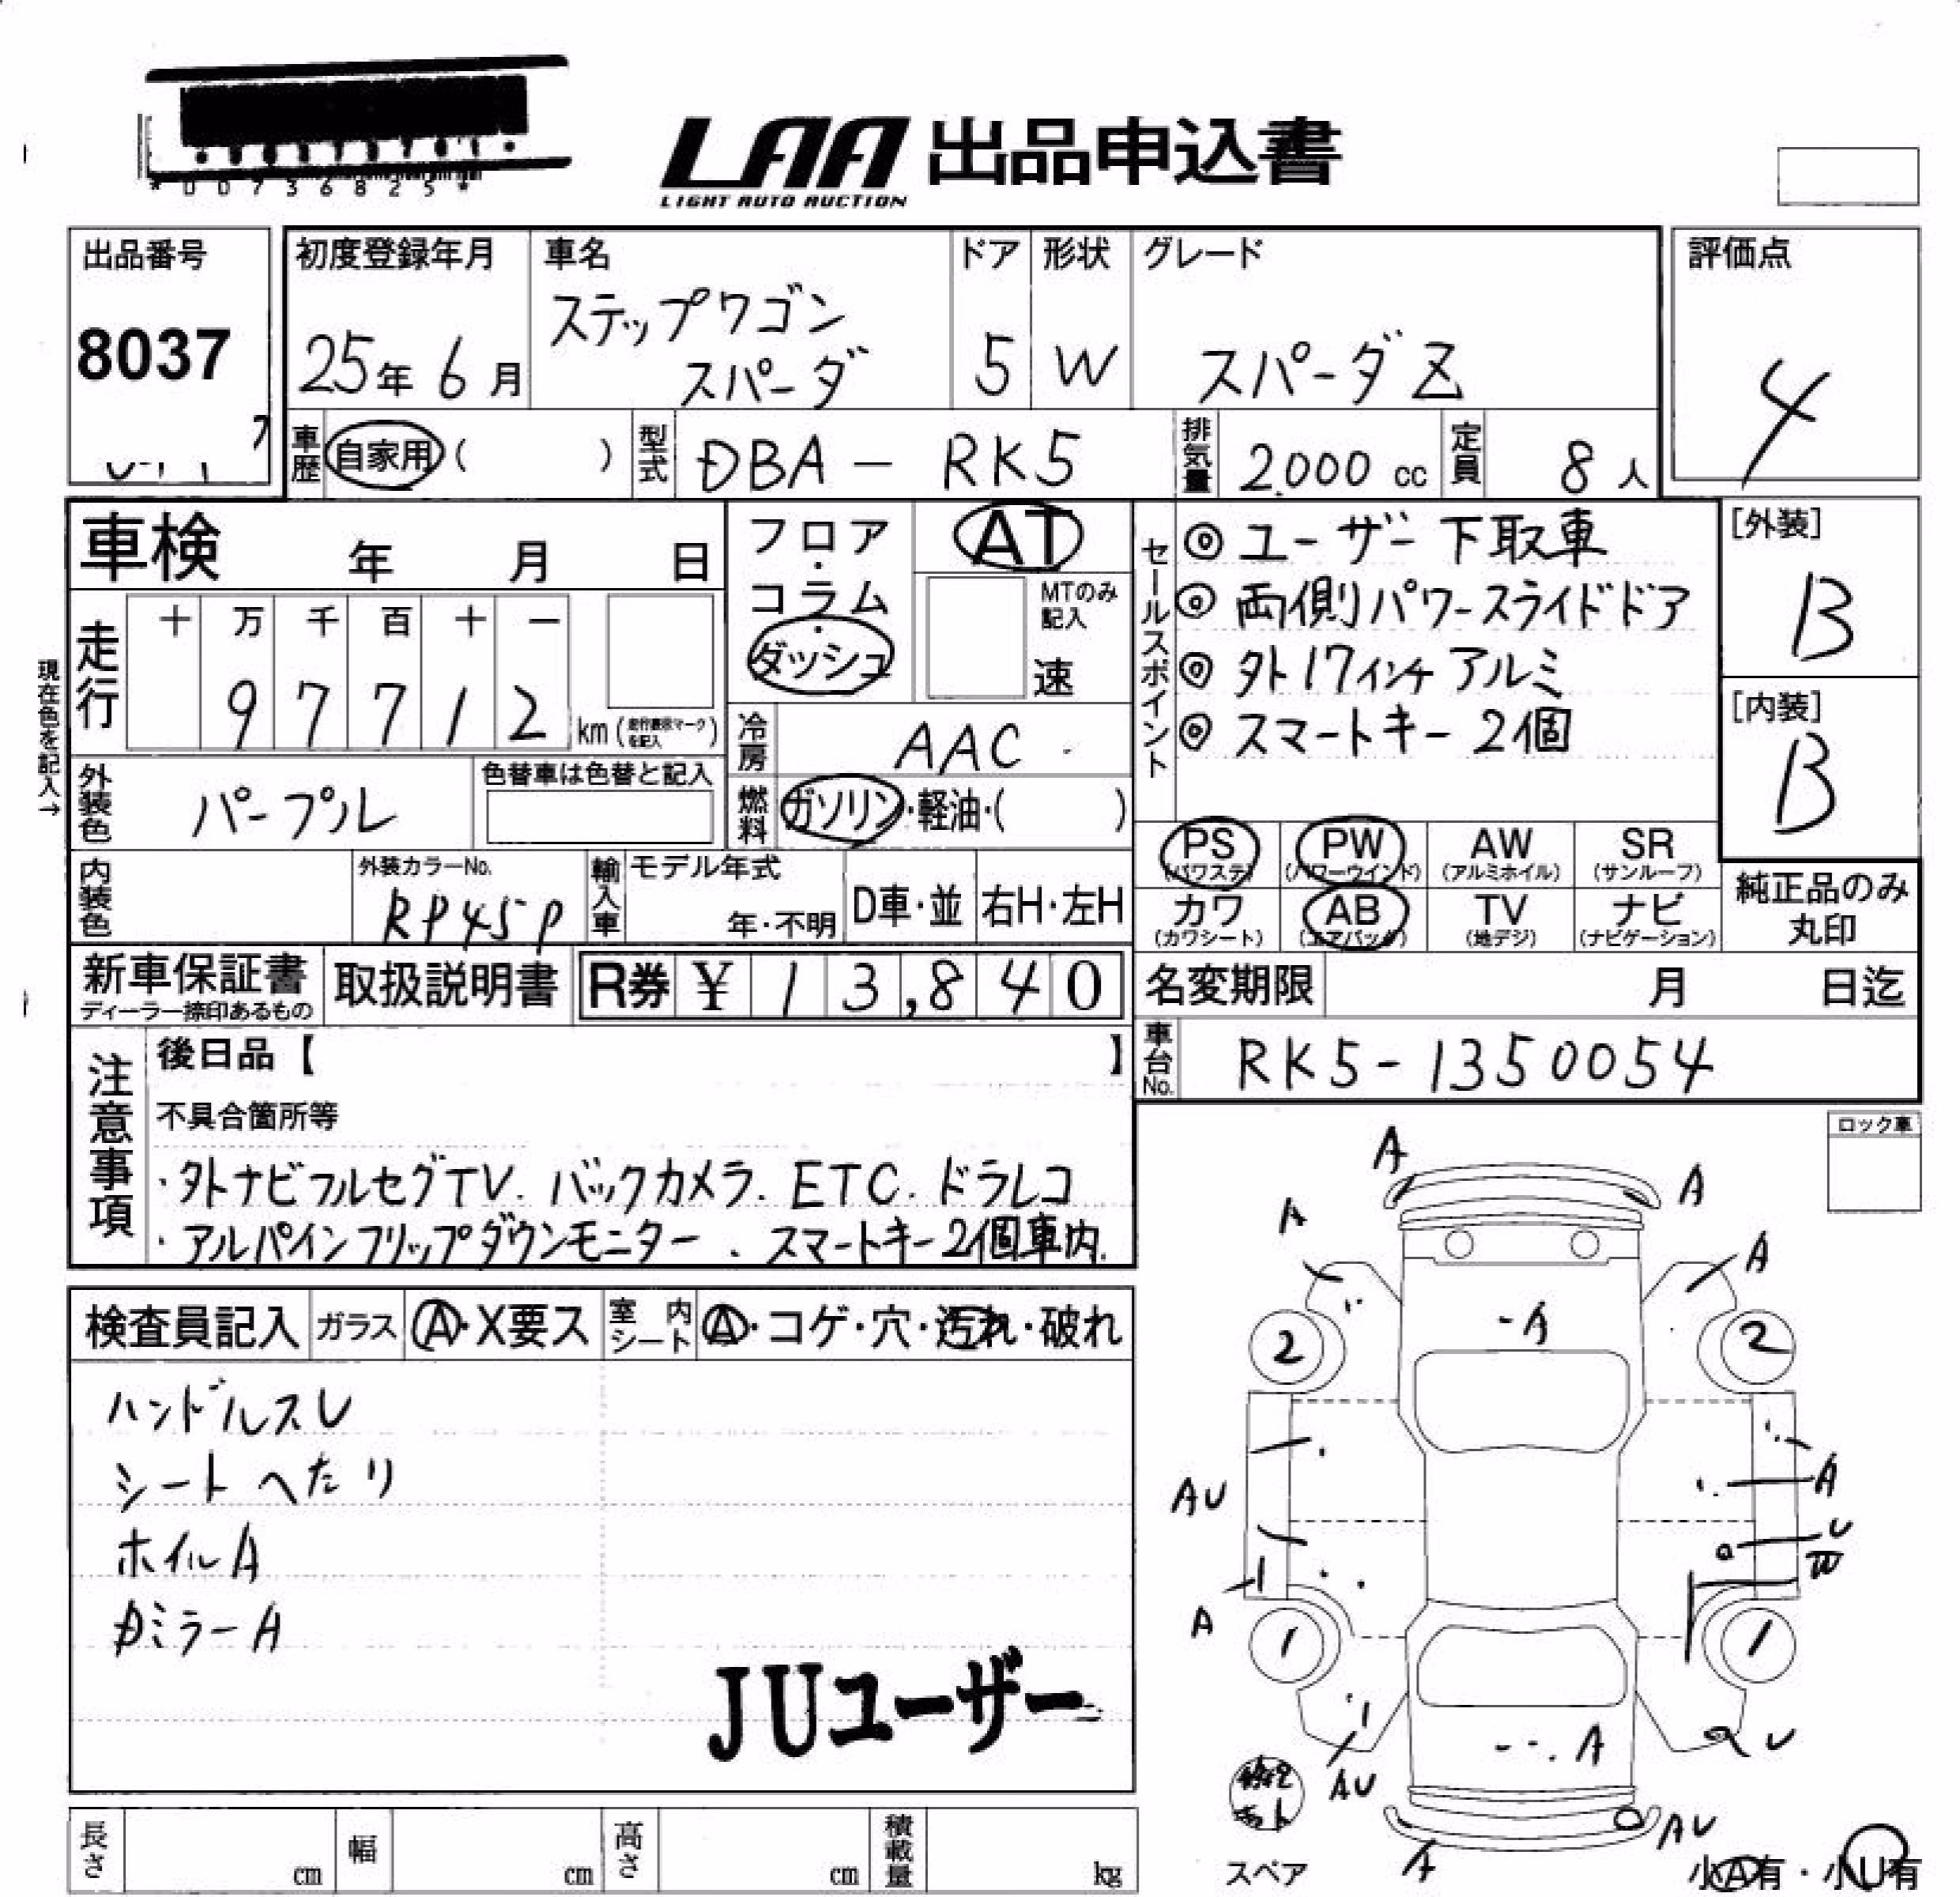 *00736825*
LAA 出品申込書
LIGHT AUTO AUCTION
出品番号
8037
初度登録年月
25年 6月
車名
ステップワゴン
スパーダ
ドア
5
形状
W
グレード
スパーダZ
評価点
4
車歴 自家用 ( )
型式 DBA - RK5
排気量 2,000 cc
定員 8人
車検 年 月 日
走行
十 万 千 百 十 一
9 7 7 1 2 km
現在色を記入→
外装色 パープル
色替車は色替と記入
内装色
外装カラーNo.
RP45P
フロア・コラム・ダッシュ
AT
MTのみ記入
速
冷房 AAC
燃料 ガソリン・軽油・( )
輸入車
モデル年式
年・不明
D車・並
右H・左H
セールスポイント
◎ ユーザー下取車
◎ 両側パワースライドドア
◎ 外17インチアルミ
◎ スマートキー2個
[外装]
B
[内装]
B
PS (パワステ)
PW (パワーウインド)
AW (アルミホイル)
SR (サンルーフ)
カワ (カワシート)
AB (エアバック)
TV (地デジ)
ナビ (ナビゲーション)
純正品のみ
丸印
新車保証書
ディーラー捺印あるもの
取扱説明書
R券 ¥ 13,840
名変期限 月 日迄
車台No. RK5-1350054
注意事項
後日品【 】
不具合箇所等
・外ナビフルセグTV. バックカメラ. ETC. ドラレコ
・アルパインフリップダウンモニター . スマートキー2個車内.
検査員記入
ガラス A・X要ス
室内シート A・コゲ・穴・汚れ・破れ
ハンドルスレ
シートへたり
ホイルA
ミラーA
JUユーザー
ロック車
A
A
A
A
A
2
2
AU
A
U
W
A
1
1
AU
A
U
AU
A
スペア
小A有・小U有
長さ cm
幅 cm
高さ cm
積載量 kg